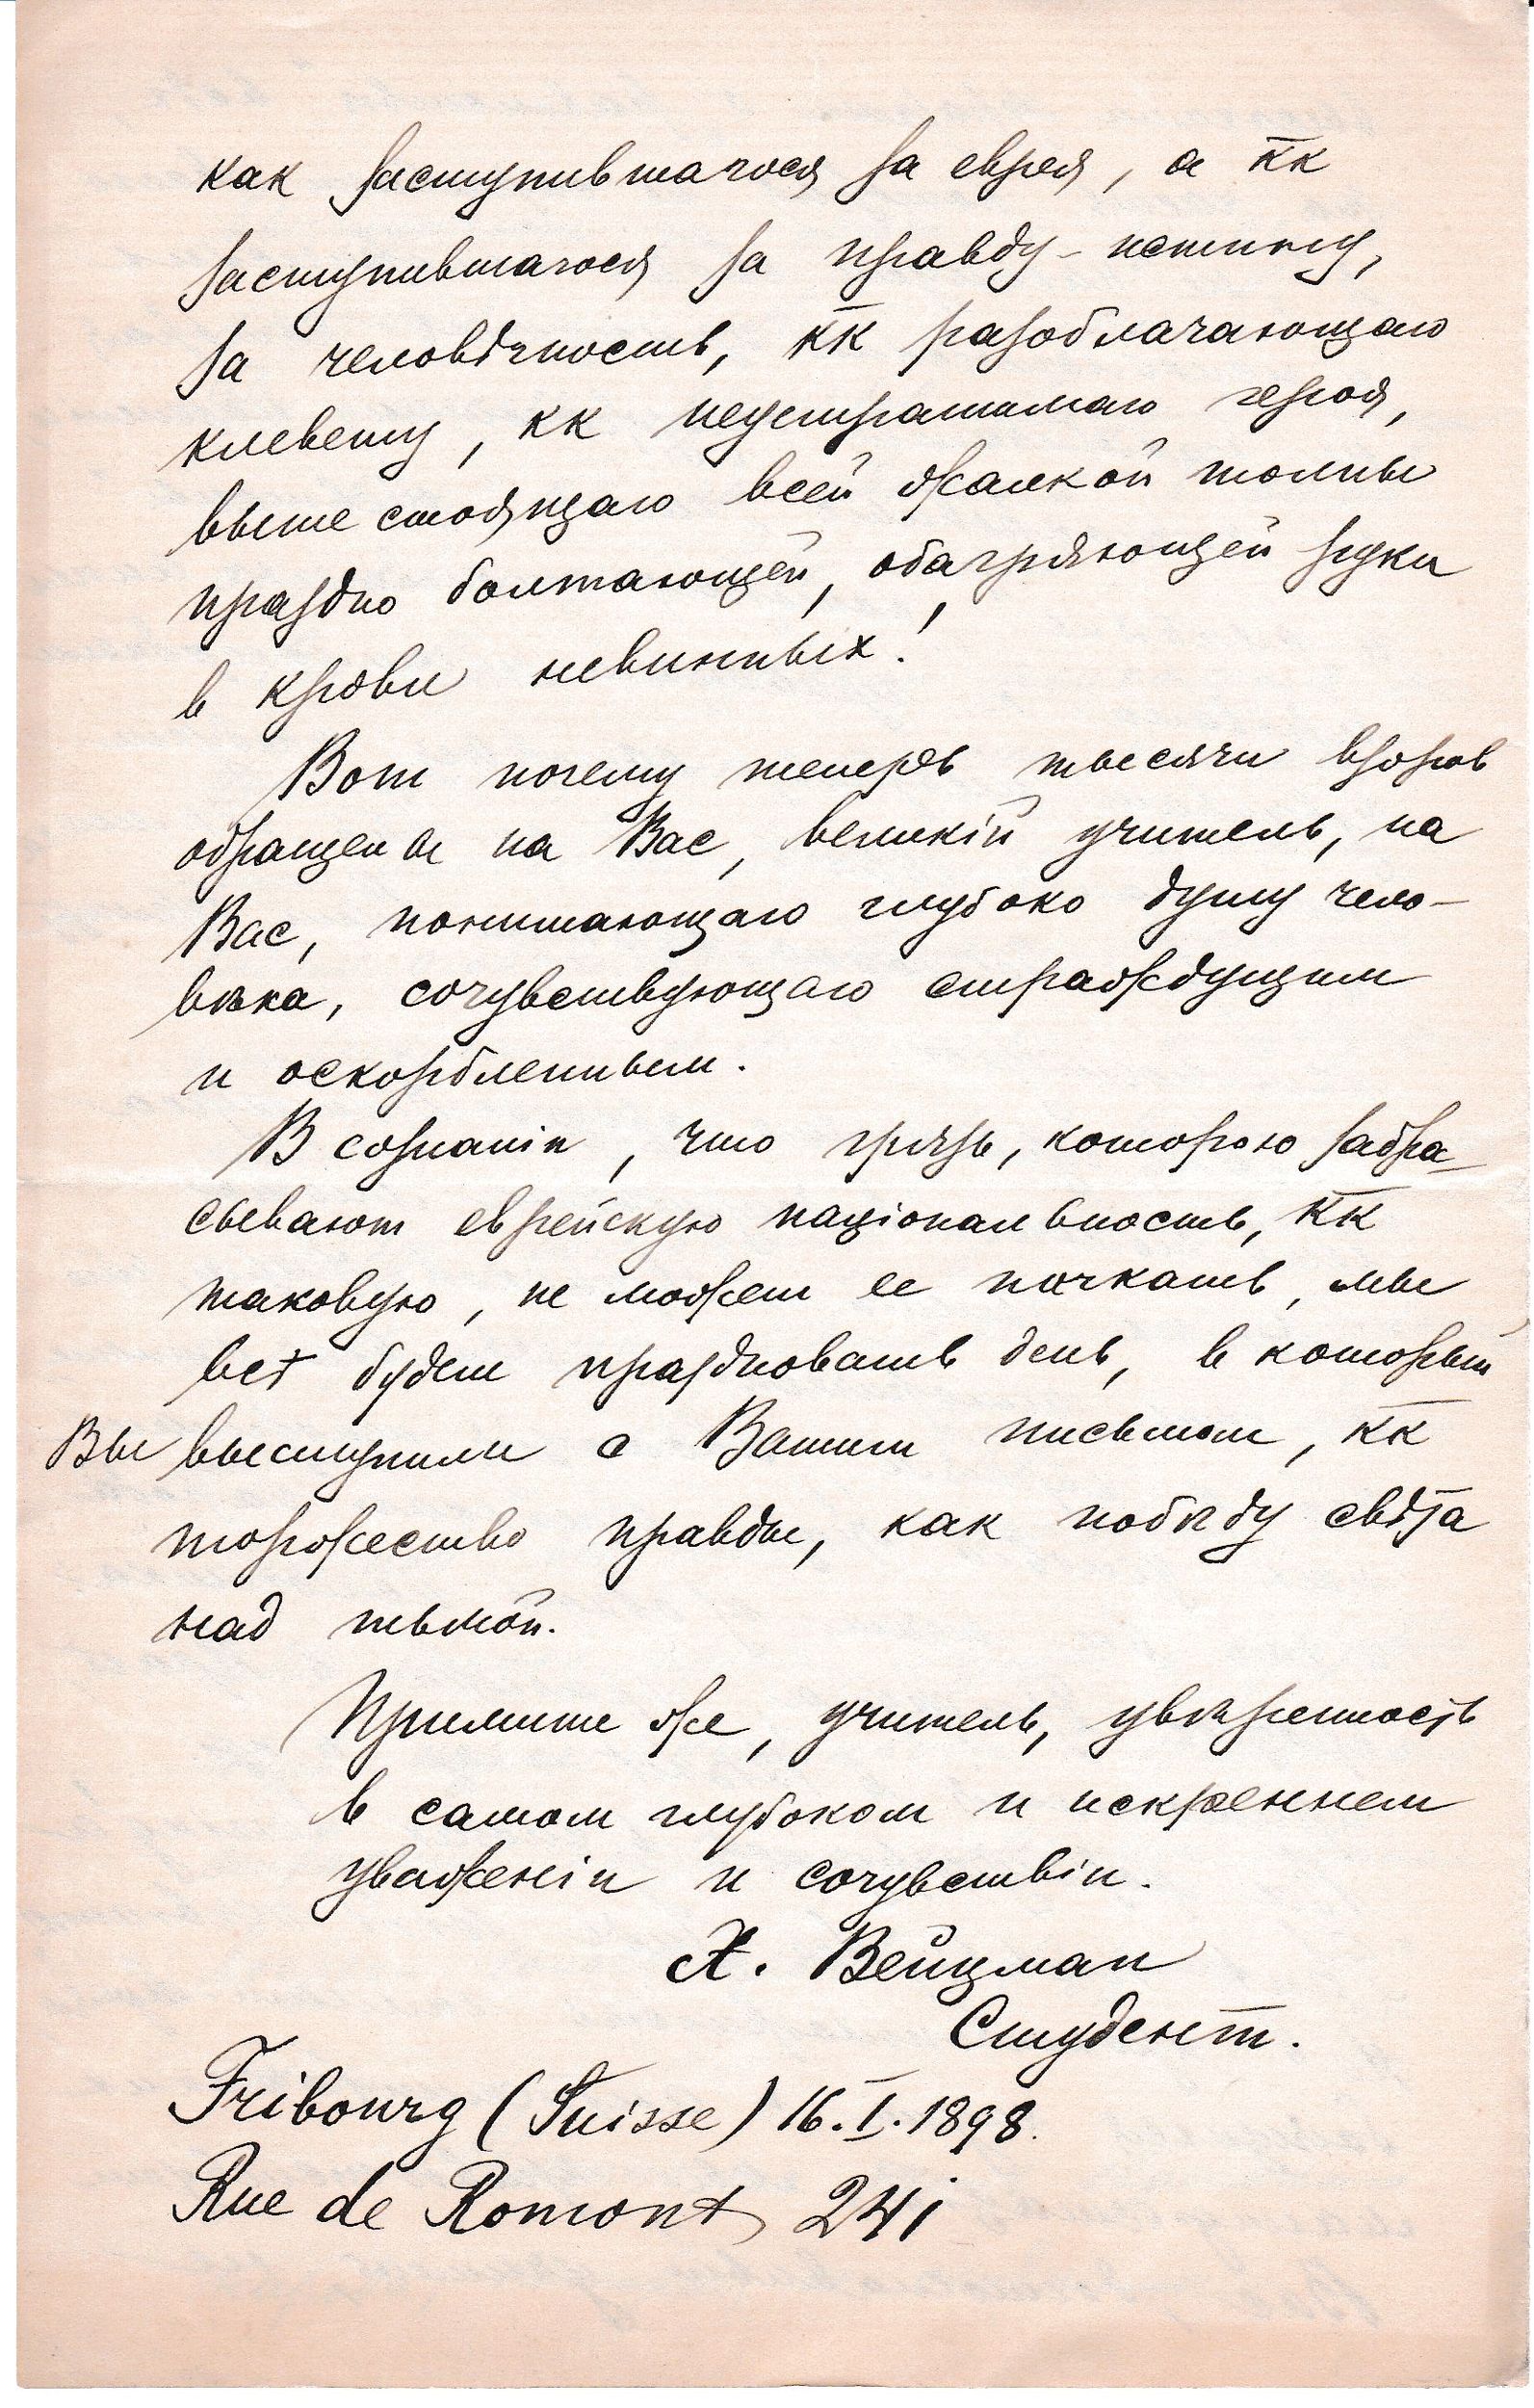 как заступившагося за еврея, а кк
заступившагося за правду-истину,
за человѣчность, кк разоблачающаго
клевету, кк неустрашимаго героя,
выше стоящаго всей жалкой толпы
праздно болтающей, обагряющей руки
в крови невинных!
Вот почему теперь тысячи взоров
обращены на Вас, великій учитель, на
Вас, понимающаго глубоко душу чело-
вѣка, сочувствующаго страждущим
и оскорбленным.
В сознаніи, что грязь, которою забра-
сывают еврейскую національность, кк
таковую, не может ее пачкать, мы
всѣ будем праздновать день, в который
Вы выступили с Вашим письмом, кк
торжество правды, как побѣду свѣта
над тьмой.
Примите же, учитель, увѣренность
в самом глубоком и искреннем
уваженіи и сочувствіи.
Х. Вейцман
Студент.
Fribourg (Suisse) 16.I.1898.
Rue de Romont 241